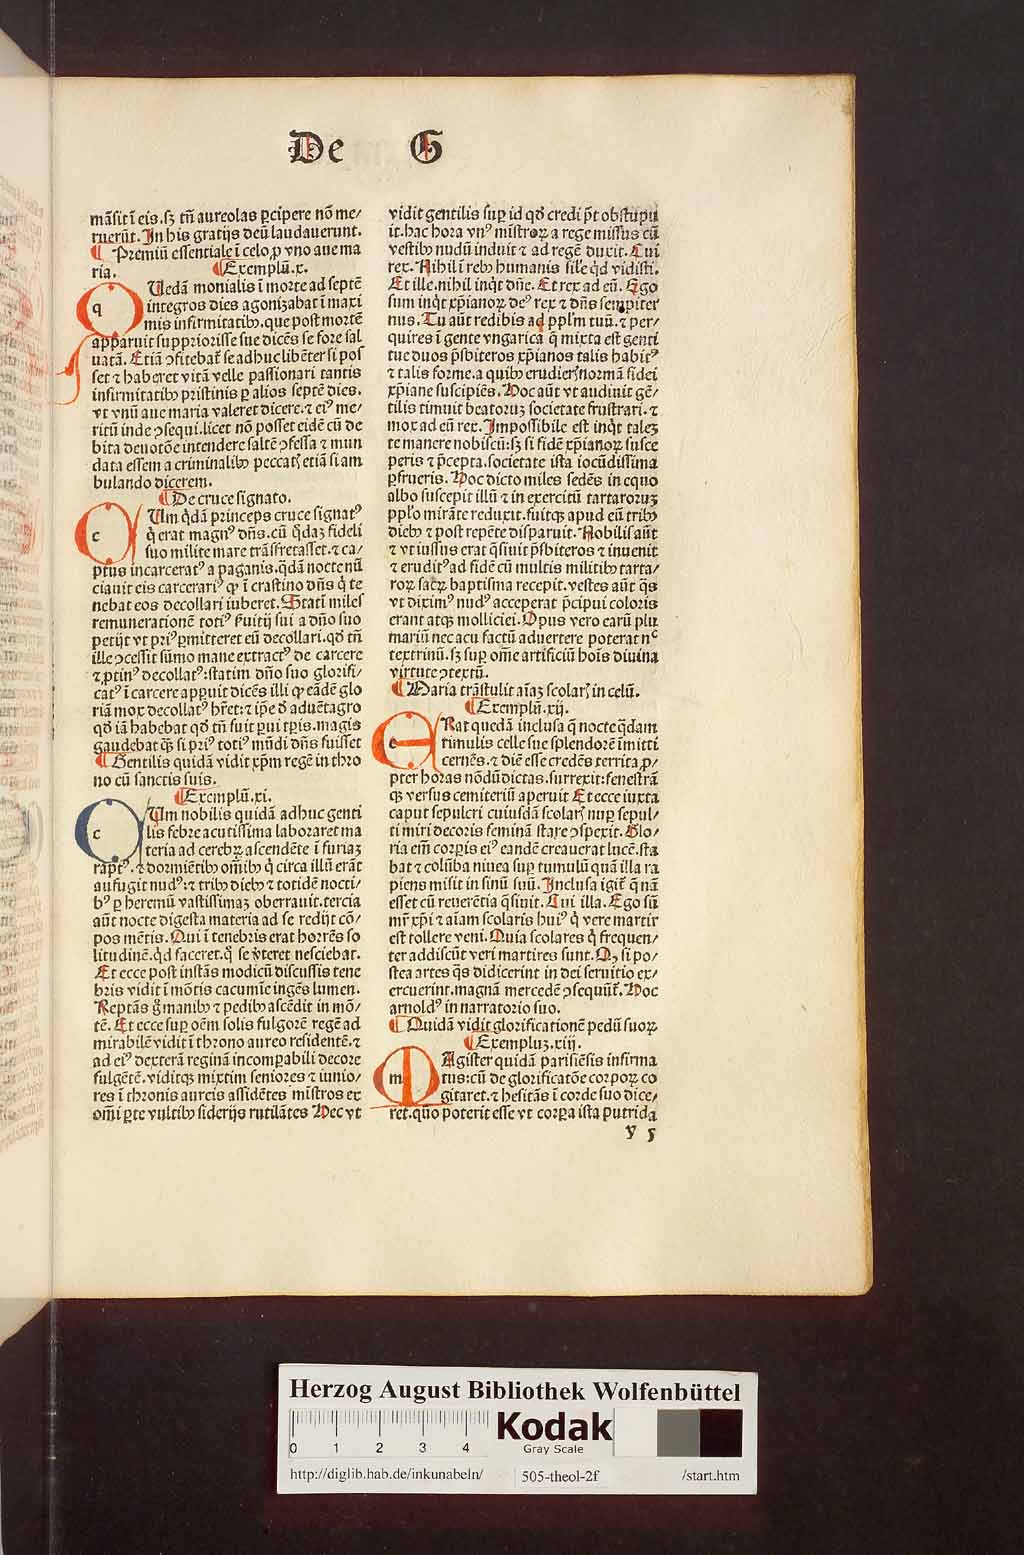 De G
mãsit ĩ eis.sʒ tñ aureolas ꝑcipere nõ me⸗
ruerũt. In his gratijs deũ laudauerunt.
¶ Premiũ essentiale ĩ celo ꝓ vno aue ma
ria. ¶ Exemplũ.x.
q Uedã monialis ĩ morte ad septẽ
integros dies agonizabat ĩ maxi
mis infirmitatibꝰ.que post mortẽ
apparuit suppriorisse sue dicẽs se fore sal
uatã. Etiã ꝯfitebat᷑ se adhuc libẽter si pos
set ⁊ haberet vitã velle passionari tantis
infirmitatibꝰ pristinis ꝑ alios septẽ dies.
vt vnũ aue maria valeret dicere.⁊ eiꝰ me⸗
ritũ inde ꝯsequi.licet nõ posset eidẽ cũ de
bita deuotõe intendere saltẽ ꝯfessa ⁊ mun
data essem a criminalibꝰ peccat᷑ etiã si am
bulando dicerem.
¶ De cruce signato.
c Um q̇dã princeps cruce signatꝰ
q̇ erat magnꝰ dñs.cũ q̇daʒ fideli
suo milite mare trãsfretasset.⁊ ca⸗
ptus incarceratꝰ a paganis.q̇dã nocte nũ
ciauit eis carcerariꝰ ꝙ ĩ crastino dñs q̇ te
nebat eos decollari iuberet. Statĩ miles
remunerationẽ totiꝰ ẜuitij sui a dño suo
petijt vt priꝰ ꝑmitteret eũ decollari.qđ tñ
ille ꝯcessit sũmo mane extractꝰ de carcere
⁊ ꝓtinꝰ decollatꝰ:statim dño suo glorifi⸗
catꝰ ĩ carcere apꝑuit dicẽs illi ꝙ eãdẽ glo
riã mox decollatꝰ hr̃et:⁊ ip̃e đ aduẽtagro
qđ iã habebat qđ tñ fuit ꝑui tꝑis.magis
gaudebat q̃ʒ si priꝰ totiꝰ mũdi dñs fuisset
¶ Gentilis quidã vidit xp̃m regẽ in thro
no cũ sanctis suis.
¶ Exemplũ.xi.
c Um nobilis quidã adhuc genti
lis febre acutissima laboraret ma
teria ad cerebꝝ ascendẽte ĩ furiaʒ
raptꝰ.⁊ dormiẽtibꝰ oĩbꝰ q̇ circa illũ erãt
aufugit nudꝰ:⁊ tribꝰ diebꝰ ⁊ totidẽ nocti⸗
bꝰ ꝑ heremũ vastissimaʒ oberrauit.tercia
aũt nocte digesta materia ad se redijt cõ⸗
pos mẽtis. Qui ĩ tenebris erat horrẽs so
litudinẽ.qđ faceret.q̊ se ṽteret nesciebat.
Et ecce post instãs modicũ discussis tene
bris vidit ĩ mõtis cacumĩe ingẽs lumen.
Reptãs g̃ manibꝰ ⁊ pedibꝰ ascẽdit in mõ⸗
tẽ. Et ecce suꝑ oẽm solis fulgorẽ regẽ ad
mirabilẽ vidit ĩ throno aureo residentẽ.⁊
ad eiꝰ dexterã reginã incomꝑabili decore
fulgẽtẽ.viditqʒ mixtim seniores ⁊ iunio⸗
res ĩ thronis aureis assidẽtes mĩstros ex
oĩm ꝑte vultibꝰ siderijs rutilãtes Hec vt
vidit gentilis suꝑ id qđ credi põt obstupu
it.hac hora vnꝰ mĩstroꝝ a rege missus eũ
vestibꝰ nudũ induit ⁊ ad regẽ duxit. Cui
rex. Nihil ĩ rebꝰ humanis sile qđ vidisti.
Et ille.nihil inq̇t dñe. Et rex ad eũ. Ego
sum inq̇t xp̃ianoꝝ deꝰ rex ⁊ dñs sempiter
nus. Tu aũt redibis ad pp̃l'm tuũ.⁊ per⸗
quires ĩ gente vngarica q̃ mixta est genti
tue duos p̃sbiteros xp̃ianos talis habitꝰ
⁊ talis forme.a quibꝰ erudier᷑ normã fidei
xp̃iane suscipiẽs. Hoc aũt vt audiuit gẽ⸗
tilis timuit beatoruʒ societate frustrari.⁊
mox ad eũ rex. Impossibile est inq̇t taleʒ
te manere nobiscũ:sʒ si fidẽ xp̃ianoꝝ susce
peris ⁊ p̃cepta.societate ista iocũdissima
ꝑfrueris. Hoc dicto miles sedẽs in equo
albo suscepit illũ ⁊ in exercitũ tartaroruʒ
pp̃l'o mirãte reduxit.fuitqʒ apud eũ tribꝰ
diebꝰ ⁊ post repẽte disparuit. Nobilis aũt
⁊ vt iussus erat q̃siuit p̃sbiteros ⁊ inuenit
⁊ eruditꝰ ad fidẽ cũ multis militibꝰ tarta⸗
roꝝ sacꝝ baptisma recepit.vestes aũt q̃s
vt diximꝰ nudꝰ acceperat p̃cipui coloris
erant atqʒ molliciei. Opus vero earũ plu
mariũ nec acu factũ aduertere poterat nᶜ
textrinũ.sʒ suꝑ om̃e artificiũ hoĩs diuina
virtute ꝯtextũ.
¶ Maria trãstulit aĩaʒ scolar᷑ in celũ.
¶ Exemplũ.xij.
e Rat quedã inclusa q̃ nocte q̃dam
rimulis celle sue splendorẽ imitti
cernẽs.⁊ diẽ esse credẽs territa.ꝓ⸗
pter horas nõdũ dictas.surrexit:fenestrã
qʒ versus cemiteriũ aperuit Et ecce iuxta
caput sepulcri cuiusdã scolar᷑ nuꝑ sepul⸗
ti miri decoris feminã stare ꝯspexit. Glo⸗
ria em̃ corꝑis eiꝰ eandẽ creauerat lucẽ.sta
bat ⁊ colũba niuea suꝑ tumulũ quã illa ra
piens misit in sinũ suũ. Inclusa igit᷑ q̃ nã
esset cũ reuerẽtia q̃siuit. Cui illa. Ego sũ
mr̃ xp̃i ⁊ aĩam scolaris huiꝰ q̇ vere martir
est tollere veni. Quia scolares q̇ frequen⸗
ter addiscũt veri martires sunt. Qʒ si po⸗
stea artes q̃s didicerint in dei seruitio ex⸗
ercuerint.magnã mercedẽ ꝯsequũt᷑. Hoc
arnoldꝰ in narratorio suo.
¶ Quidã vidit glorificationẽ pedũ suoꝝ
¶ Exempluʒ.xiij.
m Agister quidã parisiẽsis infirma
tus:cũ de glorificatõe corpoꝝ co
gitaret.⁊ hesitãs ĩ corde suo dice⸗
ret.quõ poterit esse vt corꝑa ista putrida
y 5
Herzog August Bibliothek Wolfenbüttel
0 1 2 3 4
Kodak
Gray Scale
http://diglib.hab.de/inkunabeln/ 505-theol-2f /start.htm